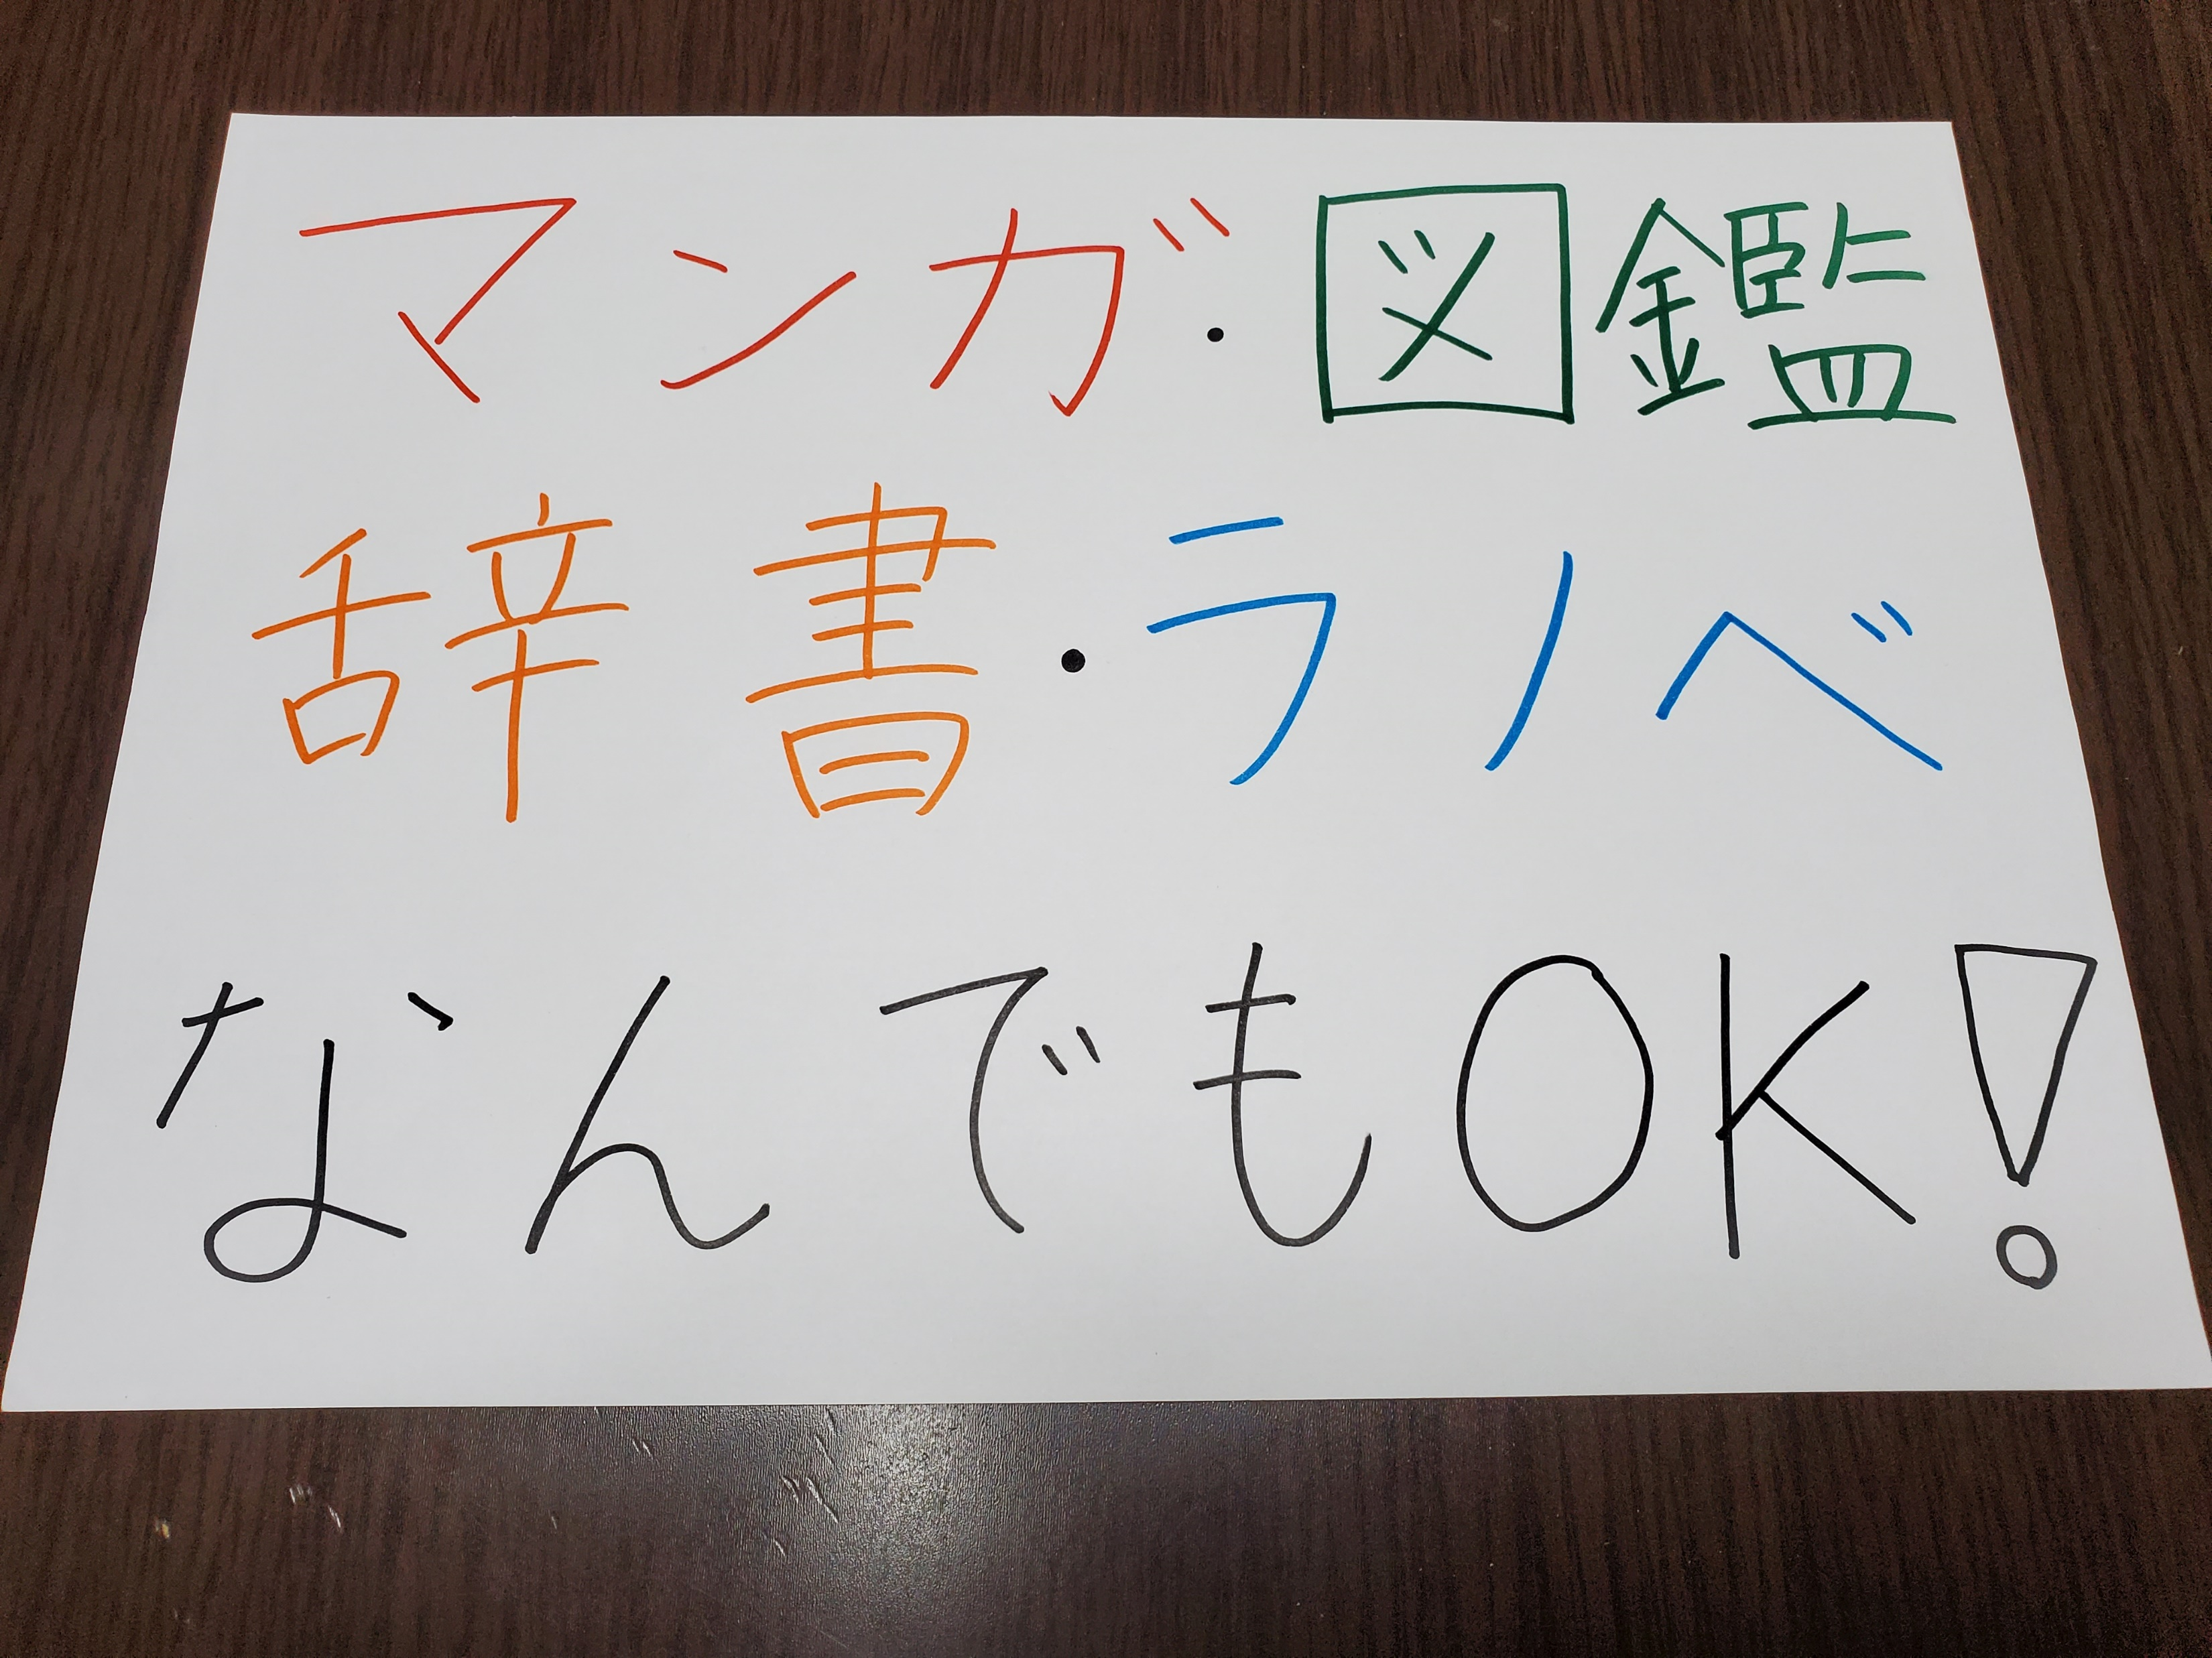 マンガ・図鑑
辞書・ラノベ
なんでもOK!